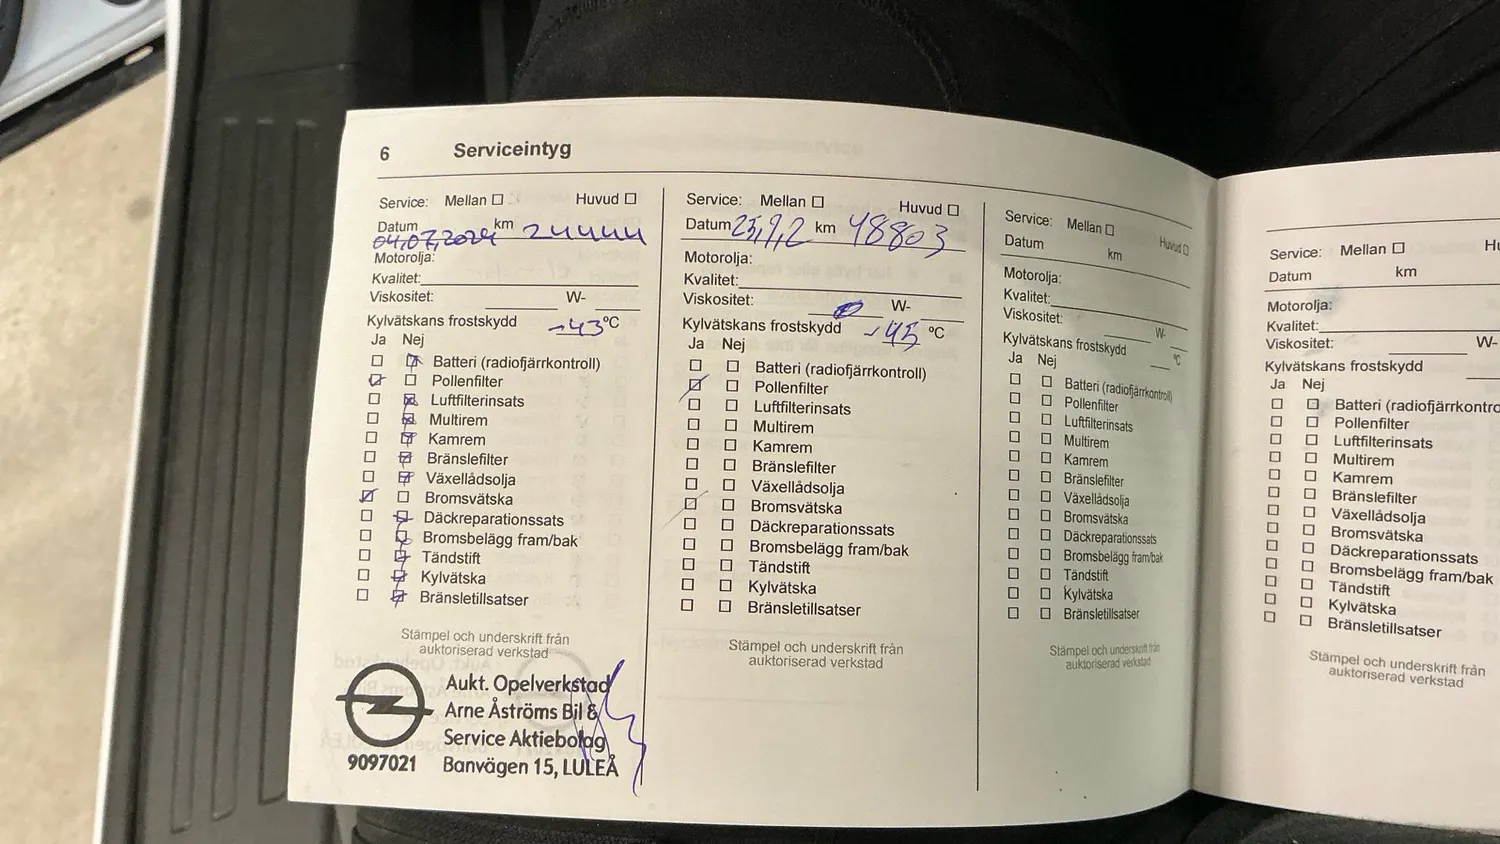 6 Serviceintyg
Service: Mellan ☐ Huvud ☐
Datum 04,07,2024 km 24444
Motorolja:
Kvalitet:
Viskositet: W-
Kylvätskans frostskydd -43 °C
Ja Nej
Batteri (radiofjärrkontroll)
Pollenfilter
Luftfilterinsats
Multirem
Kamrem
Bränslefilter
Växellådsolja
Bromsvätska
Däckreparationssats
Bromsbelägg fram/bak
Tändstift
Kylvätska
Bränsletillsatser
Stämpel och underskrift från
auktoriserad verkstad
Aukt. Opelverkstad
Arne Åströms Bil &
Service Aktiebolag
9097021 Banvägen 15, LULEÅ
Service: Mellan ☐ Huvud ☐
Datum km 48803
Motorolja:
Kvalitet:
Viskositet: W-
Kylvätskans frostskydd -45 °C
Ja Nej
Batteri (radiofjärrkontroll)
Pollenfilter
Luftfilterinsats
Multirem
Kamrem
Bränslefilter
Växellådsolja
Bromsvätska
Däckreparationssats
Bromsbelägg fram/bak
Tändstift
Kylvätska
Bränsletillsatser
Stämpel och underskrift från
auktoriserad verkstad
Service: Mellan ☐ Huvud ☐
Datum km
Motorolja:
Kvalitet:
Viskositet: W-
Kylvätskans frostskydd °C
Ja Nej
Batteri (radiofjärrkontroll)
Pollenfilter
Luftfilterinsats
Multirem
Kamrem
Bränslefilter
Växellådsolja
Bromsvätska
Däckreparationssats
Bromsbelägg fram/bak
Tändstift
Kylvätska
Bränsletillsatser
Stämpel och underskrift från
auktoriserad verkstad
Service: Mellan ☐ Hu
Datum km
Motorolja:
Kvalitet:
Viskositet: W-
Kylvätskans frostskydd
Ja Nej
Batteri (radiofjärrkontro
Pollenfilter
Luftfilterinsats
Multirem
Kamrem
Bränslefilter
Växellådsolja
Bromsvätska
Däckreparationssats
Bromsbelägg fram/bak
Tändstift
Kylvätska
Bränsletillsatser
Stämpel och underskrift från
auktoriserad verkstad